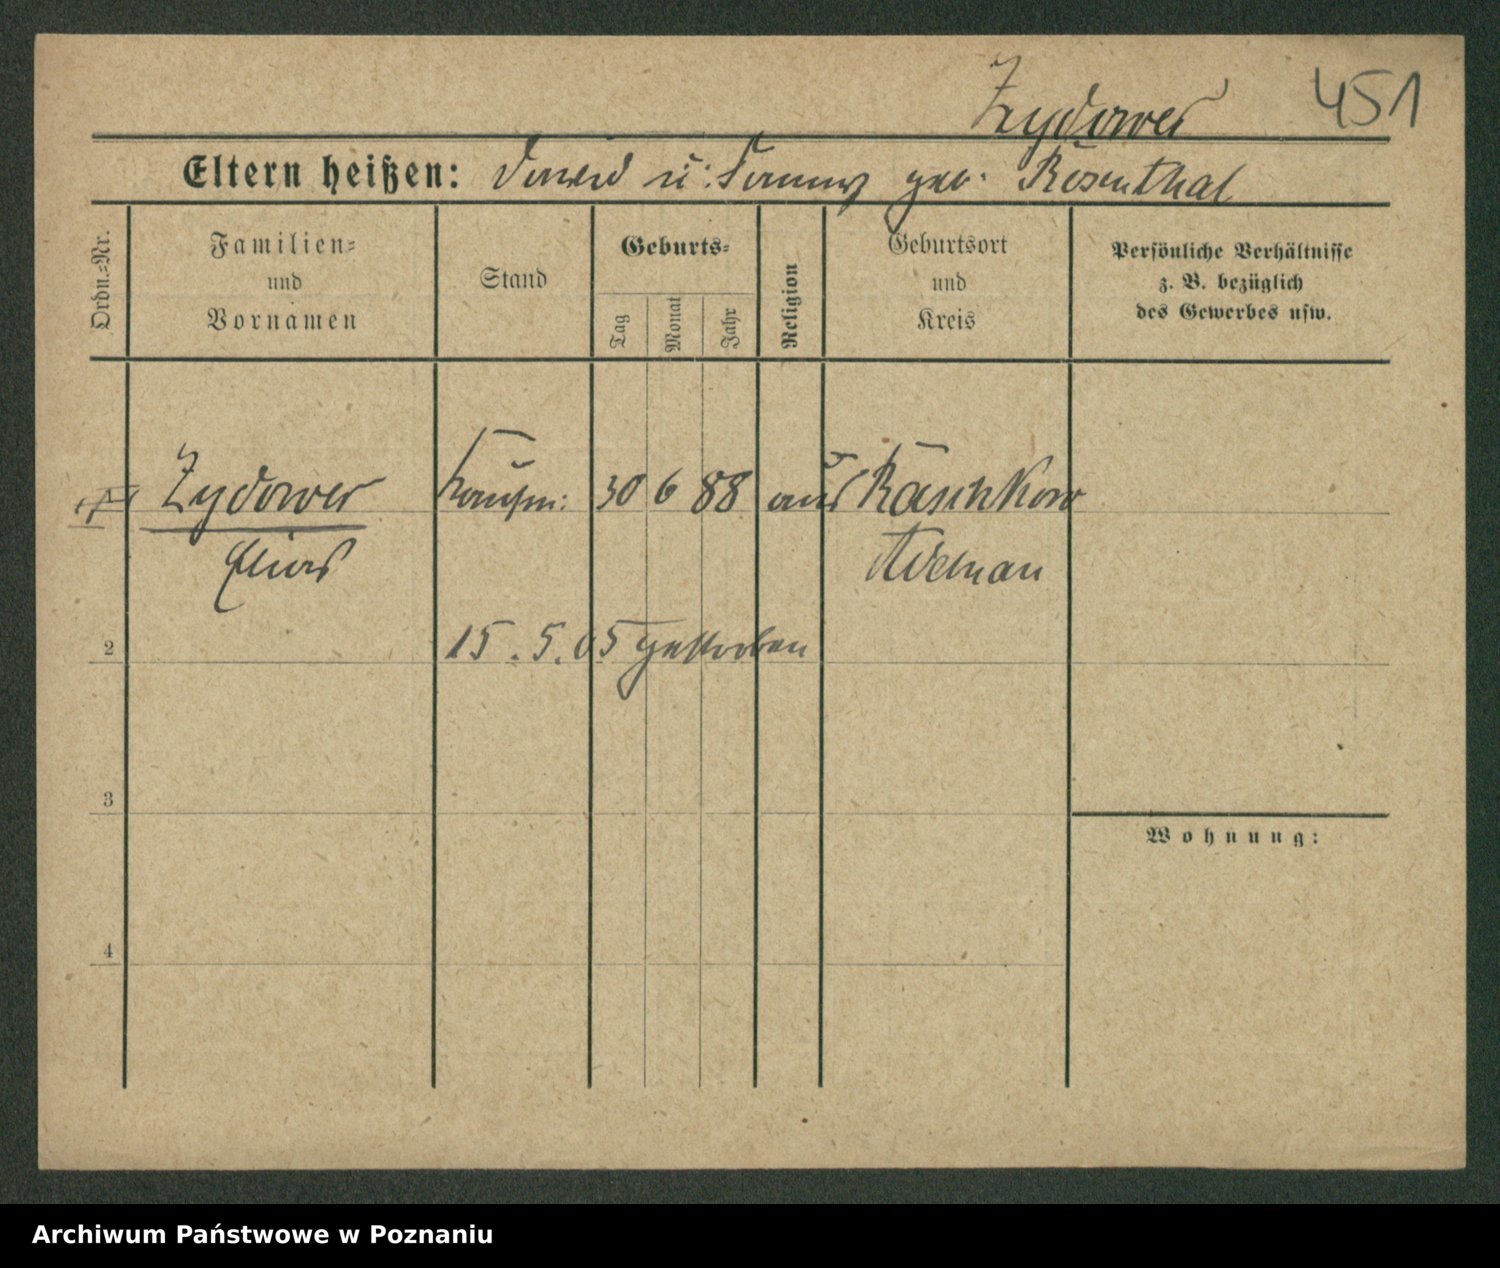 Zydower 451
Eltern heißen: David u. Fanny geb. Rosenthal
Ordn.=Nr.
Familien=
und
Vornamen
Stand
Geburts=
Tag
Monat
Jahr
Religion
Geburtsort
und
Kreis
Persönliche Verhältnisse
z. B. bezüglich
des Gewerbes usw.
Zydower Kaufm: 30 6 88 aus Raschkow
Elias Adelnau
2 15. 5. 05 gestorben
3
Wohnung:
4
Archiwum Państwowe w Poznaniu